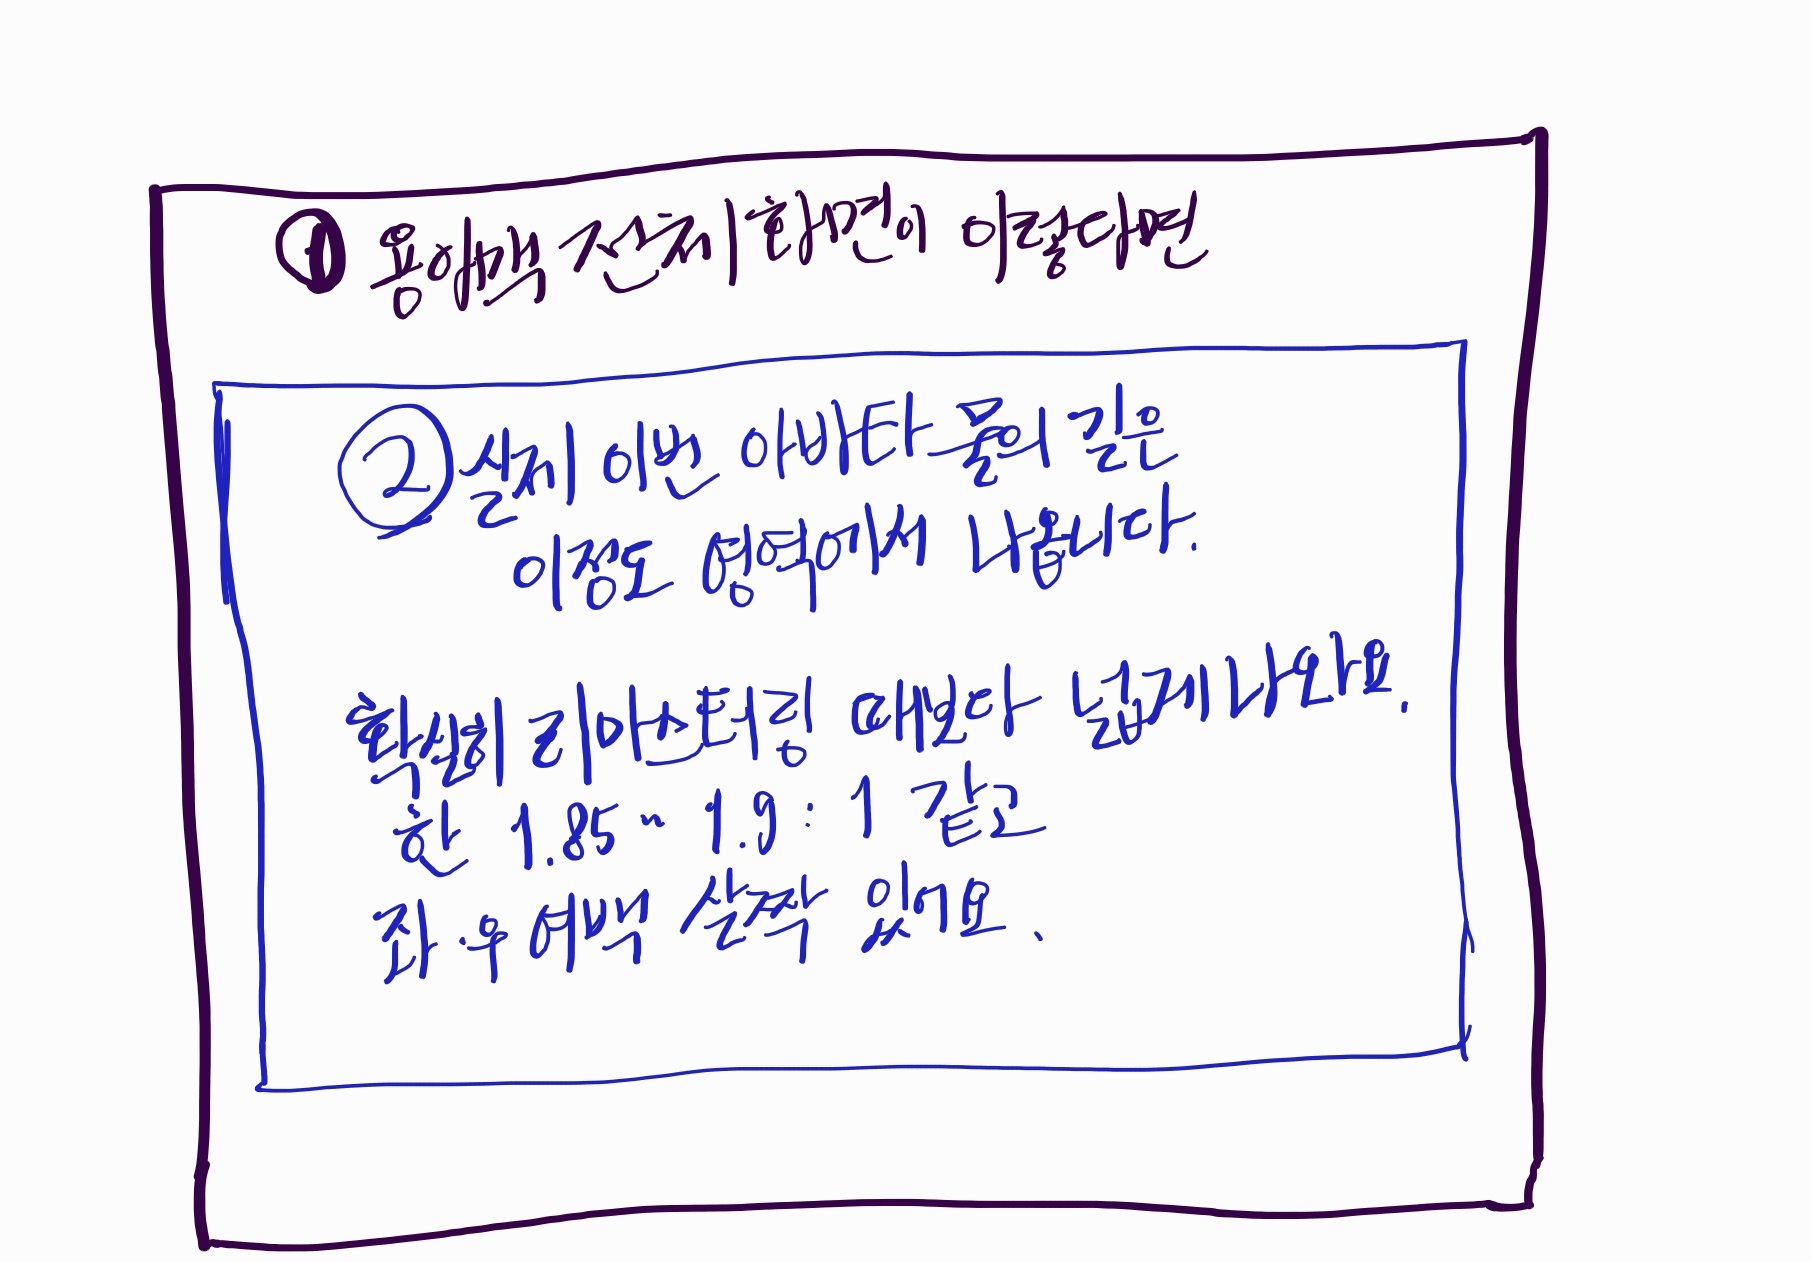 ① 용아맥 전체 화면이 이렇다면
② 실제 이번 아바타 물의 길은
이정도 영역에서 나옵니다.
확실히 리마스터링 때보다 넓게 나와요.
한 1.85~1.9:1 같고
좌·우 여백 살짝 있어요.